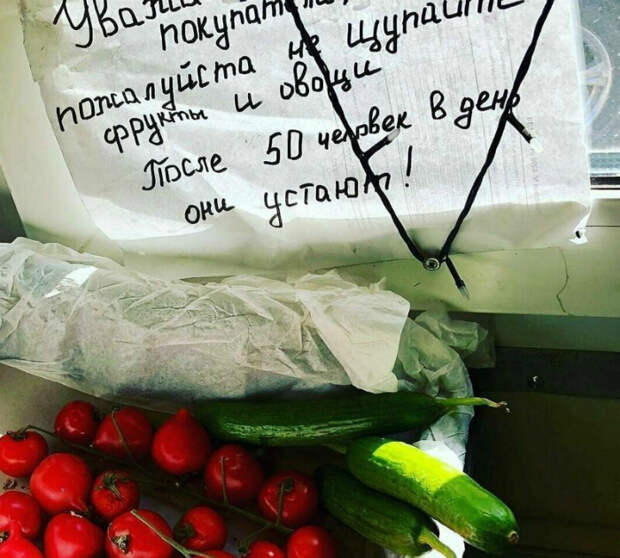 Уважа
покупатели,
пожалуйста не щупайте
фрукты и овощи
После 50 человек в день
они устают!